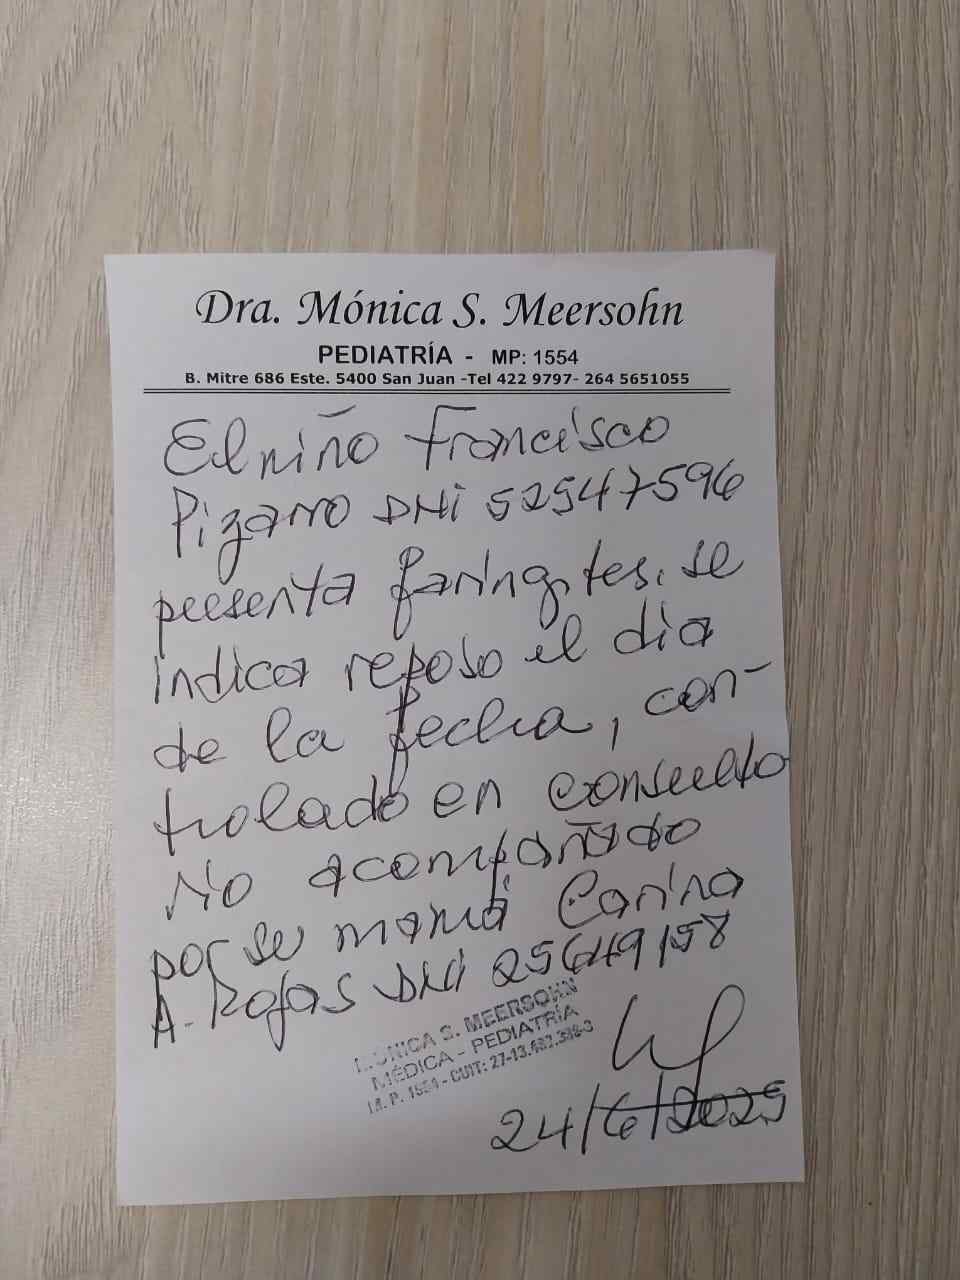 Dra. Mónica S. Meersohn
PEDIATRÍA - MP: 1554
B. Mitre 686 Este. 5400 San Juan -Tel 422 9797- 264 5651055
El niño Francisco
Pizarro DNI 52547596
presenta faringites. se
indica reposo el dia
de la fecha, con-
trolado en consulto
rio acompañado
por su mamá Carina
A. Rojas DNI 25649158
MONICA S. MEERSOHN
MÉDICA - PEDIATRÍA
M. P. 1554 - CUIT:
24/6/2025